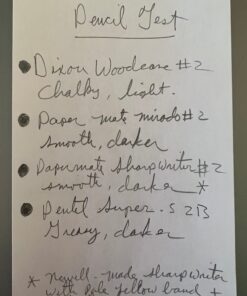 Pencil Test
Dixon Woodcase #2
Chalky, light.
Paper mate mirado #2
smooth, darker
Papermate Sharpwriter #2
smooth, darker *
Pentel Super. S 2B
Greasy, darker
* Newill-made Sharpwriter
with pale yellow band +